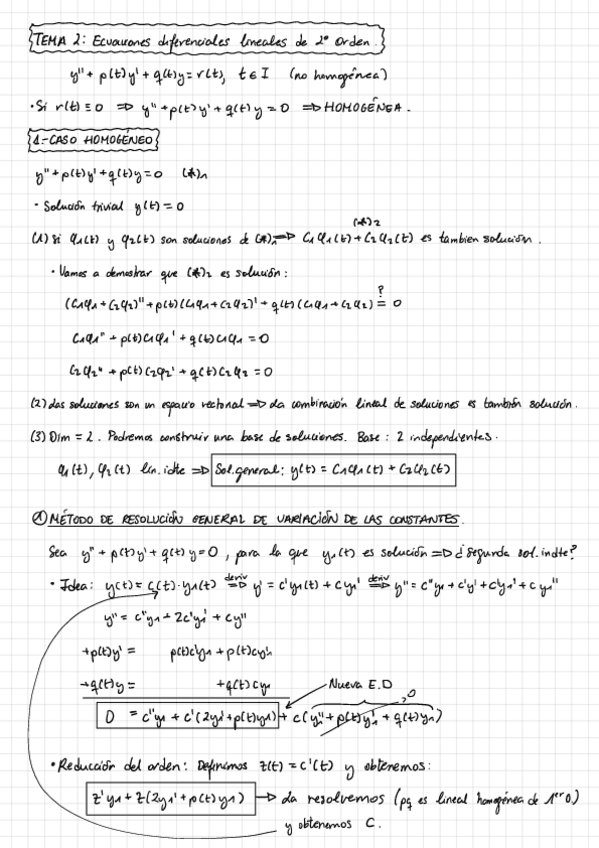 TEMA 2: Ecuaciones diferenciales lineales de 2º Orden.
y'' + p(t)y' + q(t)y = r(t), t ∈ I (no homogénea)
· Si r(t) ≡ 0 ⇒ y'' + p(t)y' + q(t)y = 0 ⇒ HOMOGÉNEA.
1.- CASO HOMOGÉNEO
y'' + p(t)y' + q(t)y = 0 (*)₁
· Solución trivial y(t) = 0
(1) Si φ₁(t) y φ₂(t) son soluciones de (*)₁ ⇒ C₁φ₁(t) + C₂φ₂(t) (*)₂ es tambien solución.
· Vamos a demostrar que (*)₂ es solución:
(C₁φ₁ + C₂φ₂)'' + p(t)(C₁φ₁ + C₂φ₂)' + q(t)(C₁φ₁ + C₂φ₂) =? 0
C₁φ₁'' + p(t)C₁φ₁' + q(t)C₁φ₁ = 0
C₂φ₂'' + p(t)C₂φ₂' + q(t)C₂φ₂ = 0
(2) Las soluciones son un espacio vectorial ⇒ La combinación lineal de soluciones es también solución.
(3) Dim = 2. Podremos construir una base de soluciones. Base: 2 independientes.
φ₁(t), φ₂(t) lin. idte ⇒ Sol. general: y(t) = C₁φ₁(t) + C₂φ₂(t)
① MÉTODO DE RESOLUCIÓN GENERAL DE VARIACIÓN DE LAS CONSTANTES.
Sea y'' + p(t)y' + q(t)y = 0, para la que y₁(t) es solución ⇒ ¿Segunda sol. indte?
· Idea: y(t) = c(t)·y₁(t) deriv ⇒ y' = c'y₁(t) + cy₁' deriv ⇒ y'' = c''y₁ + c'y' + c'y₁' + cy₁''
y'' = c''y₁ + 2c'y₁' + cy''
+p(t)y' = p(t)c'y₁ + p(t)cy₁'
+q(t)y = +q(t)cy₁
Nueva E.D
0 = c''y₁ + c'(2y₁' + p(t)y₁) + c(y₁'' + p(t)y₁' + q(t)y₁) 0
· Reducción del orden: Definimos z(t) = c'(t) y obtenemos:
z'y₁ + z(2y₁' + p(t)y₁) → La resolvemos (pq es lineal homogénea de 1er O.)
y obtenemos C.